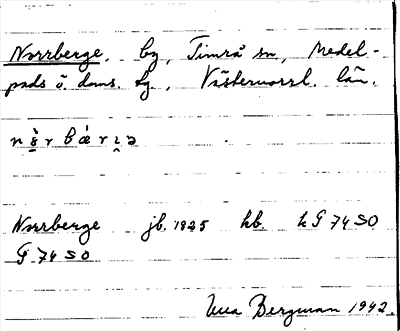 Norrberge, by, Timrå sn, Medel-
pads ö. doms. hg., Västernorrl. län.
Norrberge jb. 1925 hb. k G 74 SO
G 74 SO
Bergman 1942.